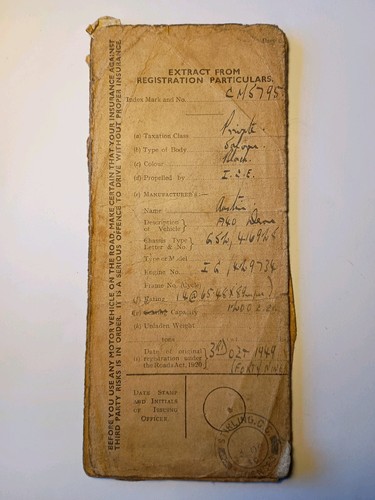 BEFORE YOU USE ANY MOTOR VEHICLE ON THE ROAD, MAKE CERTAIN THAT YOUR INSURANCE AGAINST
THIRD PARTY RISKS IS IN ORDER. IT IS A SERIOUS OFFENCE TO DRIVE WITHOUT PROPER INSURANCE.
EXTRACT FROM
REGISTRATION PARTICULARS.
Index Mark and No.
(a) Taxation Class Private
(b) Type of Body Saloon
(c) Colour Black
(d) Propelled by I.C.E.
(e) MANUFACTURER'S:—
Name Austin
Description of Vehicle A40 Devon
Chassis Type Letter & No.
Type or Model
Engine No.
Frame No. (Cycle)
(f) Rating
Capacity
(h) Unladen Weight
Date of original registration under the Roads Act, 1920 3RD OCT 1949
(FORTY NINE)
DATE STAMP
AND INITIALS
OF ISSUING
OFFICER.